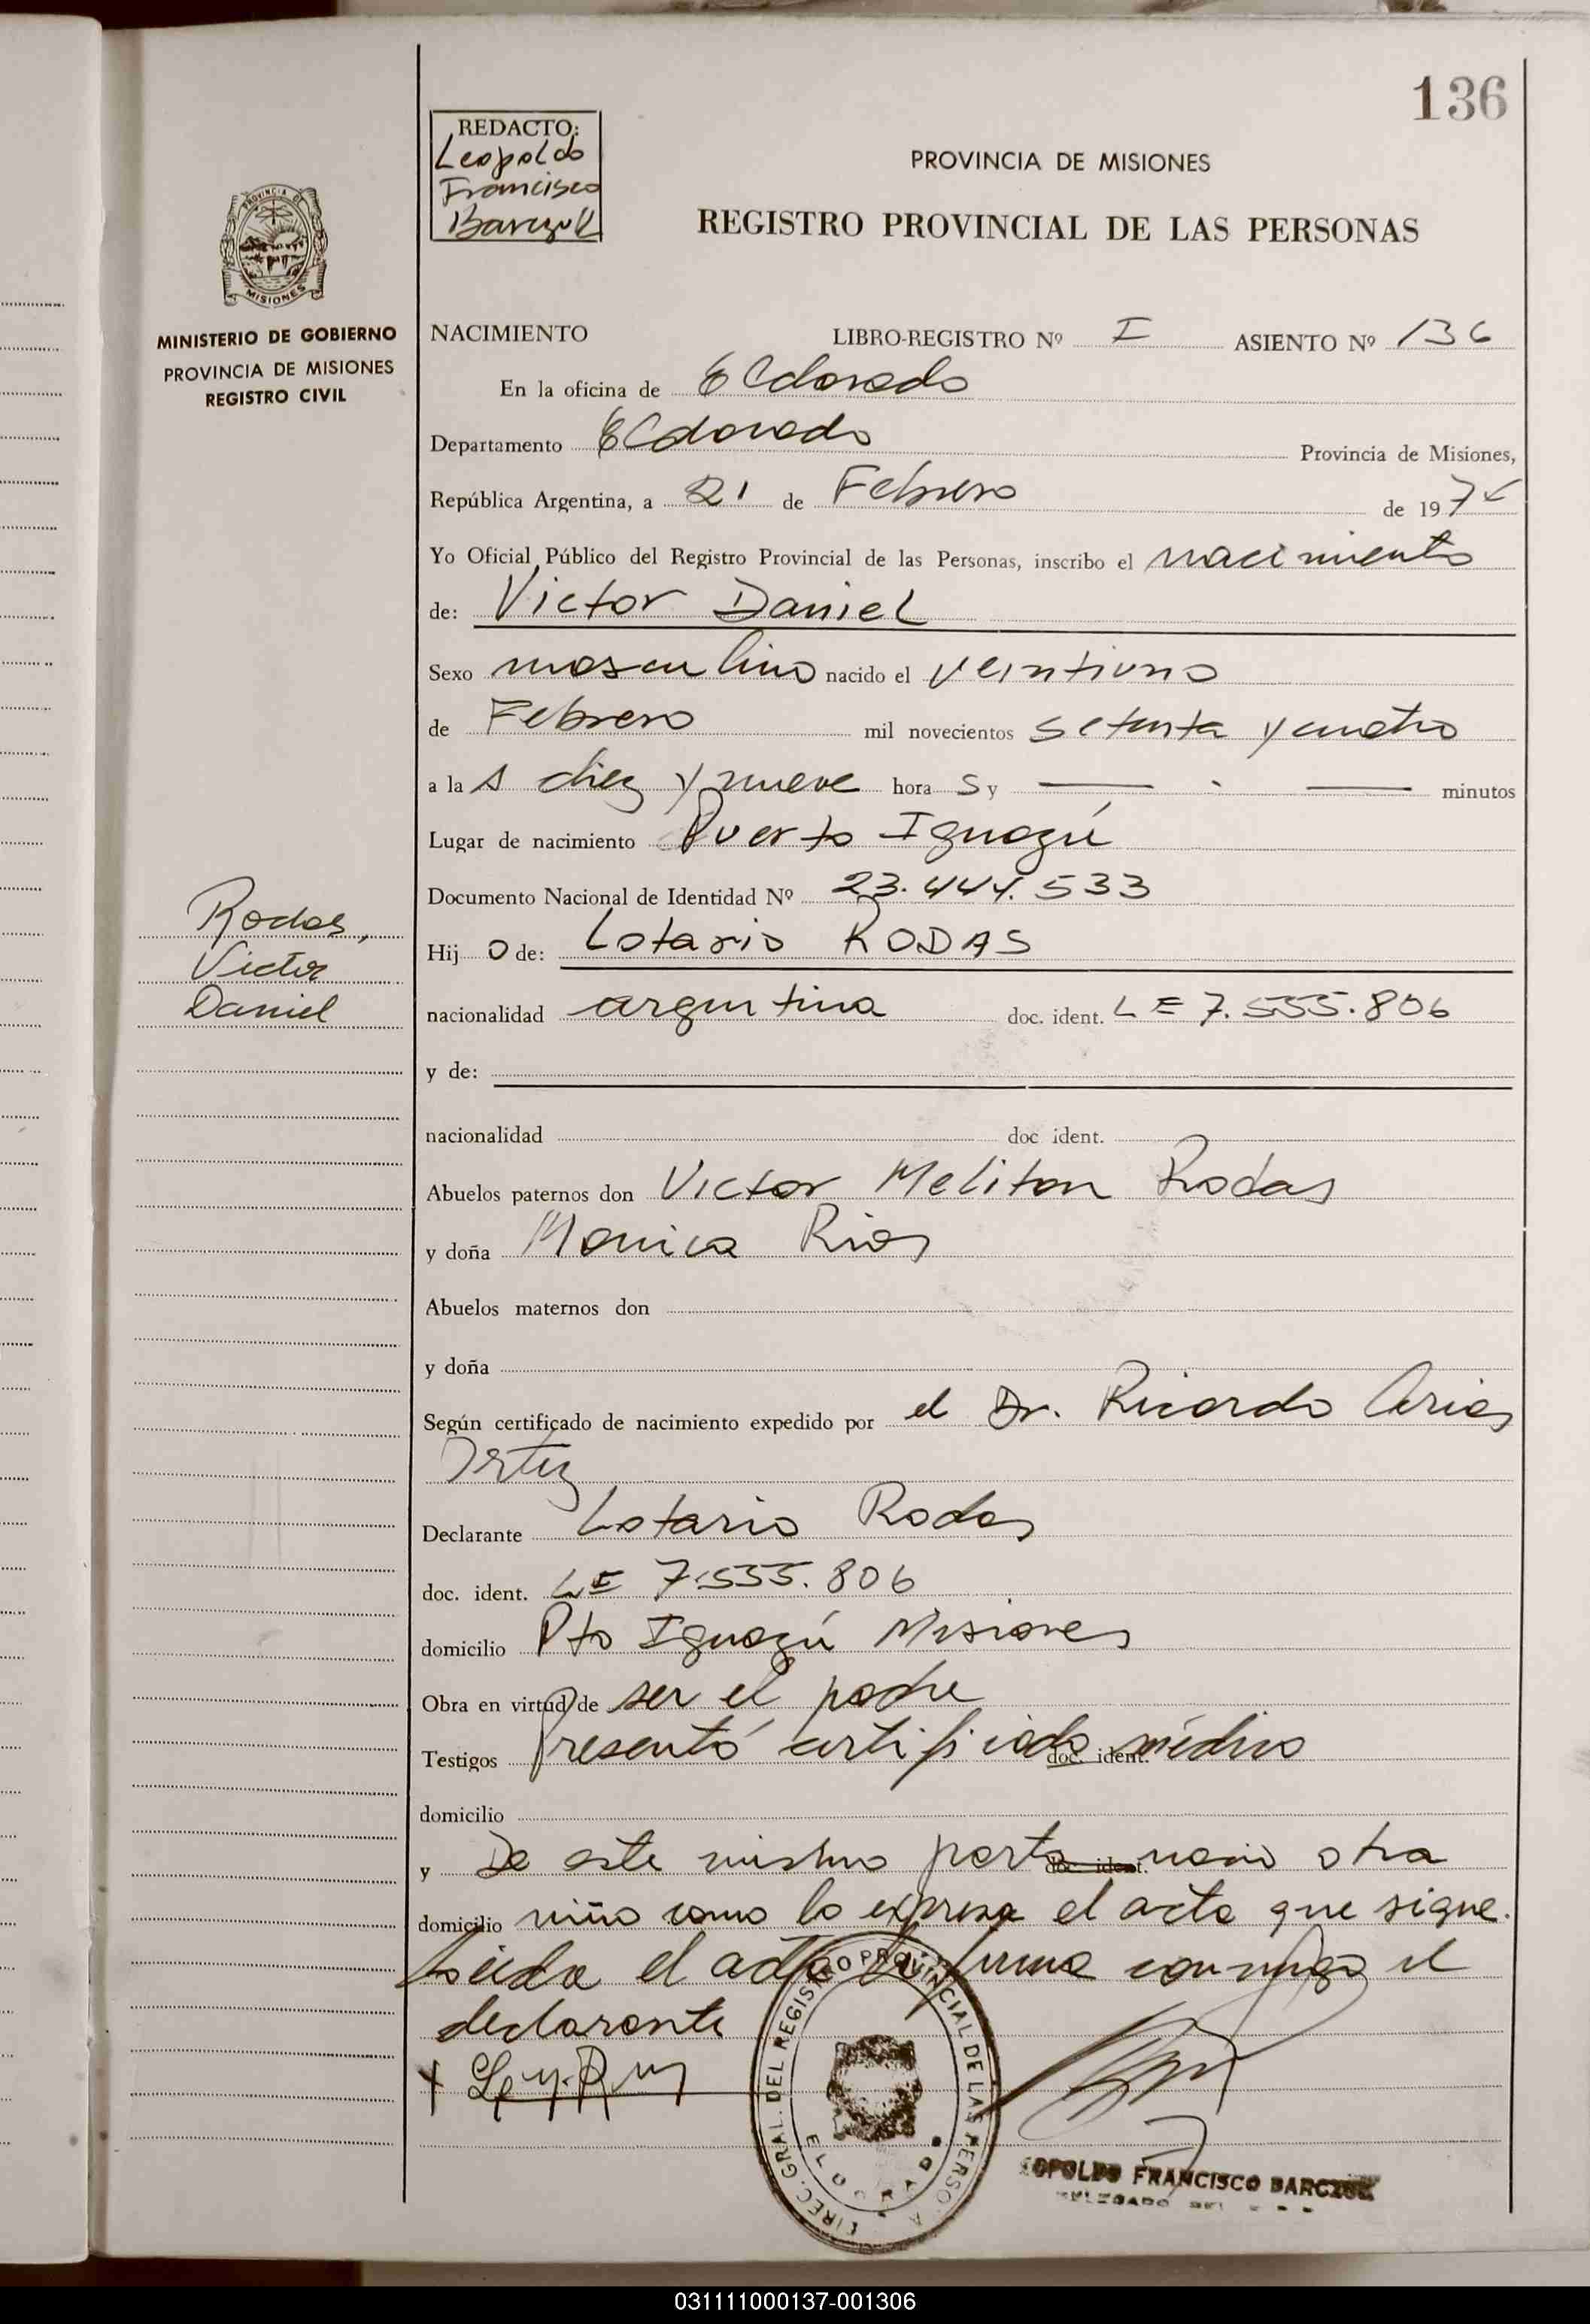 136
REDACTO:
Leopoldo
Francisco
PROVINCIA DE MISIONES
REGISTRO PROVINCIAL DE LAS PERSONAS
PROVINCIA DE
MISIONES
MINISTERIO DE GOBIERNO
PROVINCIA DE MISIONES
REGISTRO CIVIL
NACIMIENTO LIBRO-REGISTRO Nº I ASIENTO Nº 136
En la oficina de Eldorado
Departamento Eldorado Provincia de Misiones,
República Argentina, a 21 de Febrero de 1974
Yo Oficial Público del Registro Provincial de las Personas, inscribo el nacimiento
de: Victor Daniel
Sexo masculino nacido el veintiuno
de Febrero mil novecientos setenta y cuatro
a la s diez y nueve hora s y — . — minutos
Lugar de nacimiento Puerto Iguazú
Documento Nacional de Identidad Nº 23.444.533
Rodas,
Victor
Daniel
Hij o de: Lotario RODAS
nacionalidad argentina doc. ident. LE 7.555.806
y de:
nacionalidad doc ident.
Abuelos paternos don Victor Meliton Rodas
y doña Monica Rios
Abuelos maternos don
y doña
Según certificado de nacimiento expedido por el Dr. Ricardo Arias
Ortiz
Declarante Lotario Rodas
doc. ident. LE 7.555.806
domicilio Pto Iguazú Misiones
Obra en virtud de ser el padre
Testigos Presentó certificado doc. ident. médico
domicilio
y De este mismo parto doc. ident. nació otra
domicilio niño como lo expresa el acta que sigue.
Leída el acta la firma conmigo el
declarante
DIREC. GRAL. DEL REGISTRO PROVINCIAL DE LAS PERSONAS
ELDORADO
LEOPOLDO FRANCISCO
031111000137-001306